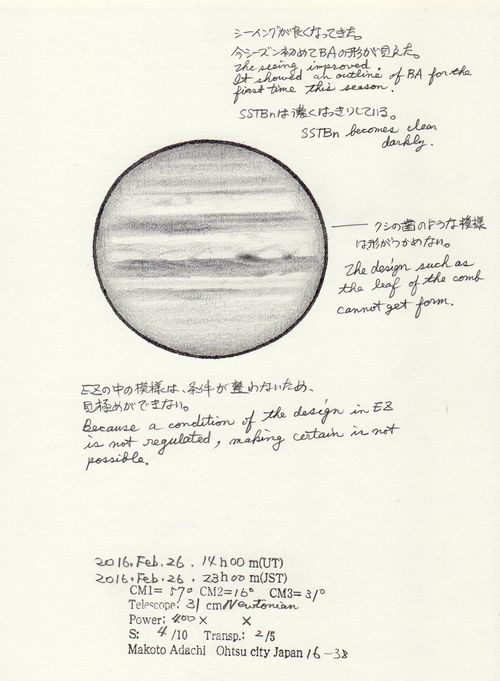 シーイングが良くなってきた。
今シーズン初めてBAの形が見えた。
The seeing improved.
It showed an outline of BA for the
first time this season.
SSTBnは濃くはっきりしている。
SSTBn becomes clear
darkly.
クシの歯のような模様
は形がつかめない。
The design such as
the leaf of the comb
cannot get form.
EZの中の模様は、条件が整わないため、
見極めができない。
Because a condition of the design in EZ
is not regulated, making certain is not
possible.
2016. Feb. 26. 14h00m(UT)
2016. Feb. 26. 23h00m(JST)
CM1= 57° CM2=16° CM3=31°
Telescope: 31 cm Newtonian
Power: 400× ×
S: 4/10 Transp.: 2/5
Makoto Adachi Ohtsu city Japan 16-38